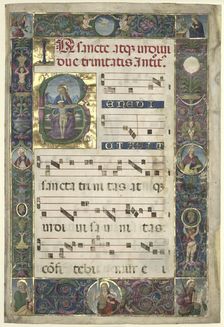 sancte atq indiui
due trinitatis
B ENEDI
CTA SIT
sancta trini tas at q
indi ui sa u ni tas
confi tebi mur e i